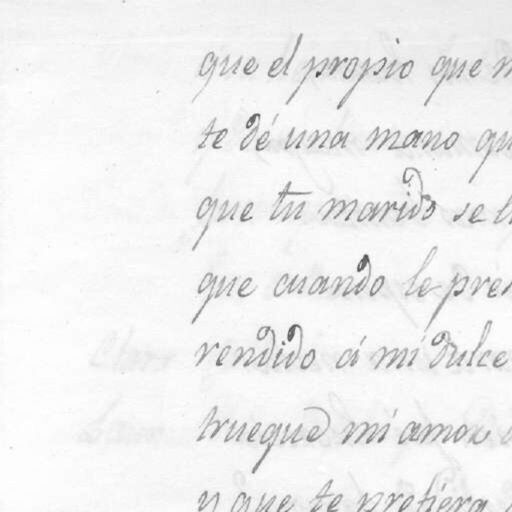 que el propio que
te dé una mano
que tu marido se
que cuando le
rendido á mi dulce
trueque mi amor
y que te prefiera